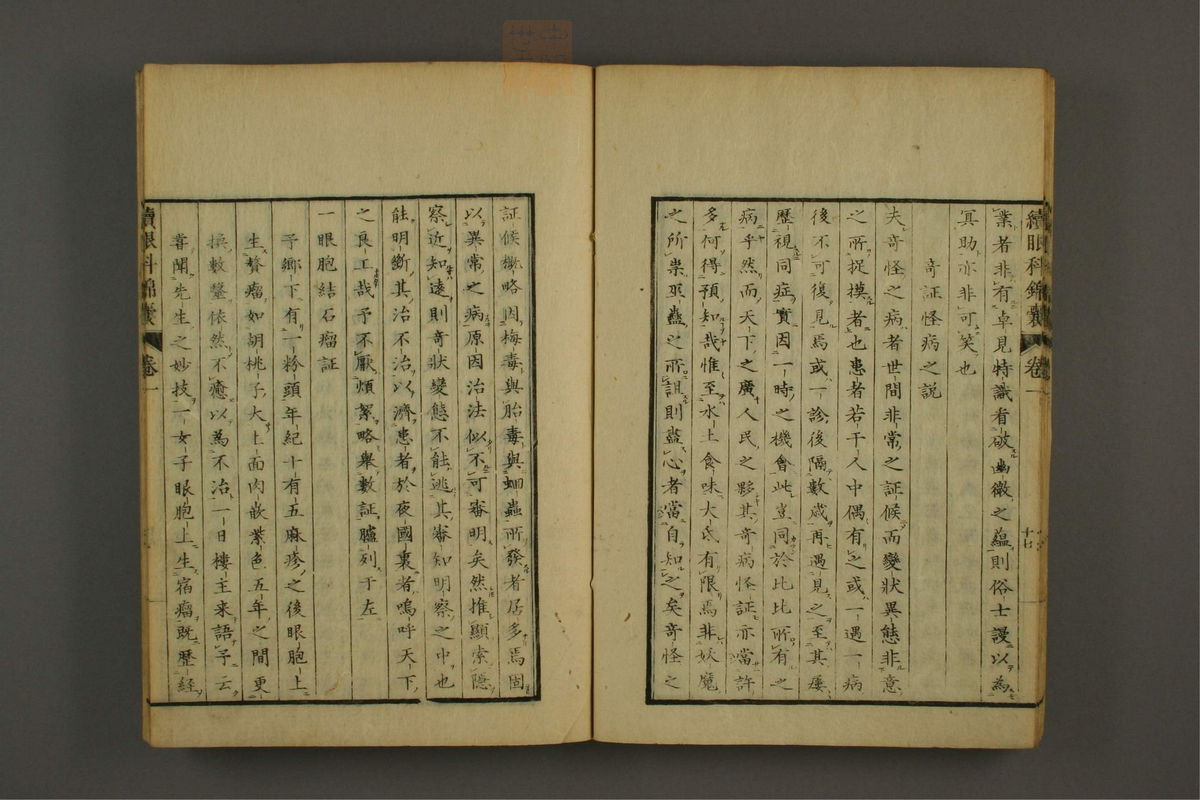 續眼科錦囊 卷一 十七
業者非有卓見特識看破幽微之蘊則俗士謾以為
冥助亦非可笑也
奇証怪病之説
夫奇怪之病者世間非常之証候而變狀異態非意
之所捉摸者也患者若干人中偶有之或一遇一病
後不可復見焉或一診後隔數歳再遇見之至其屢
歴視同症實因一時之機會此豈同於比比所有之
病乎然而天下之廣人民之夥其奇病怪証亦當許
多何得預知哉惟至水土食味大氐有限焉非妖魔
之所祟巫蠱之所詛則盡心者當自知之矣奇怪之
証候概略因梅毒與胎毒與蛔蟲所發者居多焉固
以異常之病原因治法似不可審明矣然推顯索隱
察近知遠則奇狀變態不能逃其審知明察之中也
能明斷其治不治以濟患者於夜國裏者嗚呼天下
之良工哉予不厭煩絮略舉數証臚列于左
一眼胞結石瘤証
予鄉下有一粉頭年紀十有五麻疹之後眼胞上
生贅瘤如胡桃子大上面肉嵌紫色五年之間更
換數醫依然不癒以為不治一日樓主来語予云
嘗聞先生之妙技一女子眼胞上生宿瘤既歴經
續眼科錦囊 卷一